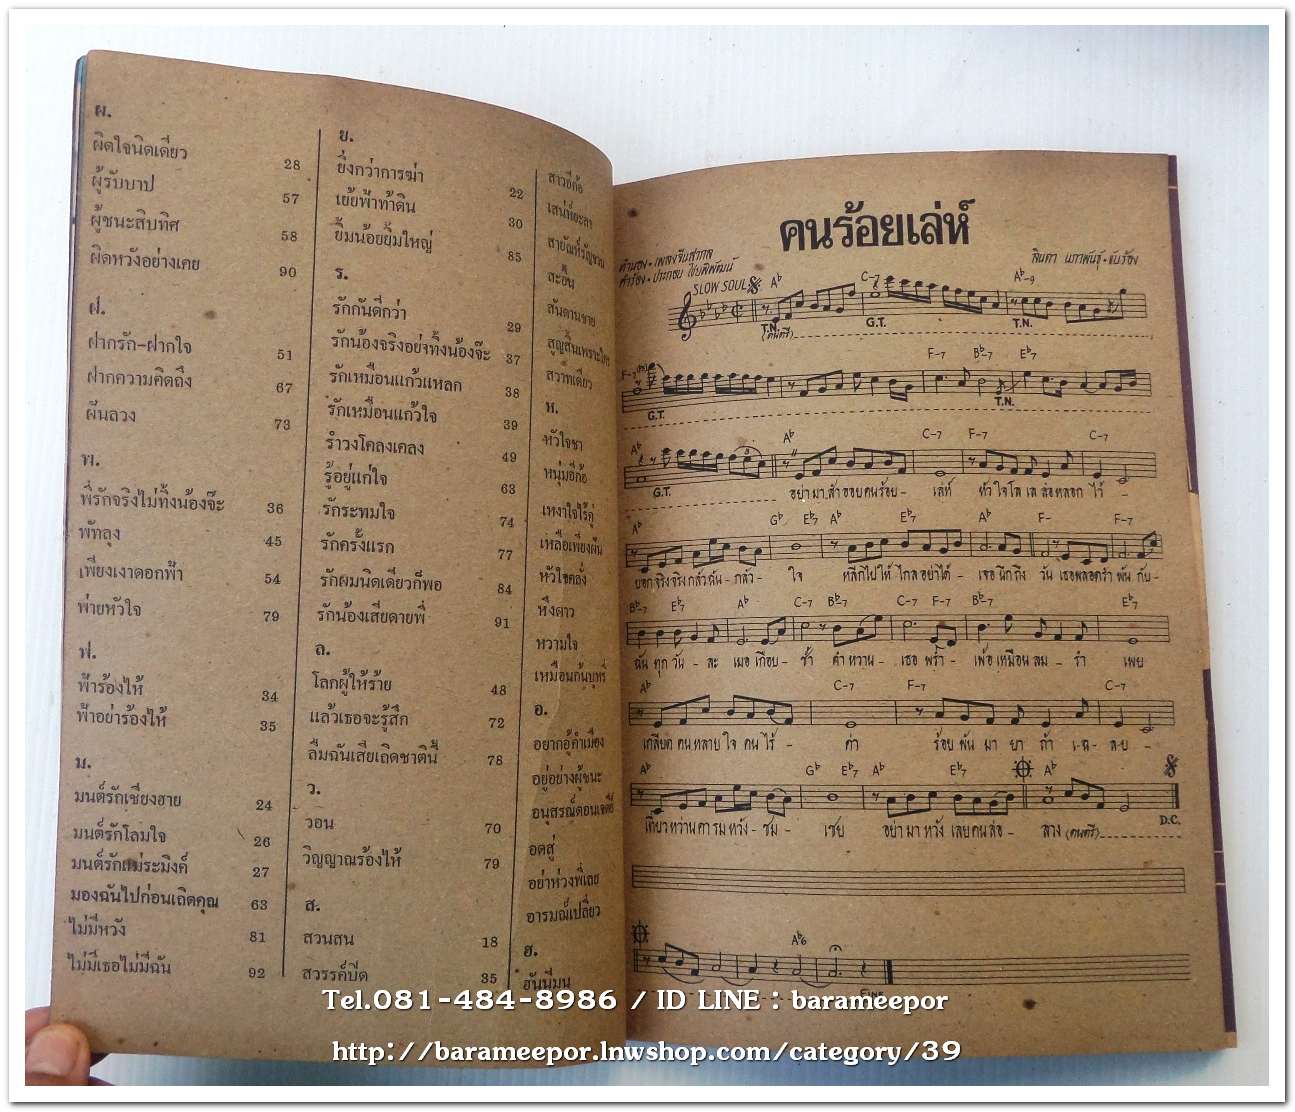 ผ.
ผิดใจนิดเดียว 28
ผู้รับบาป 57
ผู้ชนะสิบทิศ 58
ผิดหวังอย่างเคย 90
ฝ.
ฝากรัก-ฝากใจ 51
ฝากความคิดถึง 67
ฝันลวง 73
พ.
พี่รักจริงไม่ทิ้งน้องจ๊ะ 36
พัทลุง 45
เพียงเงาดอกฟ้า 54
พ่ายหัวใจ 79
ฟ.
ฟ้าร้องไห้ 34
ฟ้าอย่าร้องไห้ 35
ม.
มนต์รักเชียงฮาย 24
มนต์รักโลมใจ 26
มนต์รักแม่ระมิงค์ 27
มองฉันไปก่อนเถิดคุณ 63
ไม่มีหวัง 81
ไม่มีเธอไม่มีฉัน 92
ย.
ยิ่งกว่าการฆ่า 22
เย้ยฟ้าท้าดิน 30
ยิ้มน้อยยิ้มใหญ่ 85
ร.
รักกันดีกว่า 29
รักน้องจริงอย่าทิ้งน้องจ๊ะ 37
รักเหมือนแก้วแหลก 38
รักเหมือนแก้วใจ 39
รำวงโคลงเคลง 49
รู้อยู่แก่ใจ 63
รักระทมใจ 74
รักครั้งแรก 77
รักผมนิดเดียวก็พอ 84
รักน้องเสียดายพี่ 91
ล.
โลกผู้ให้ร้าย 48
แล้วเธอจะรู้สึก 72
ลืมฉันเสียเถิดชาตินี้ 78
ว.
วอน 70
วิญญาณร้องไห้ 79
ส.
สวนสน 18
สวรรค์ปิด 35
สาวอีก้อ
สะอื้น
สันดานชาย
สวาทเดียว
ห.
หัวใจชา
หนุ่มอีก้อ
เหงาใจไร้คู่
เหลือเพียงฝัน
หัวใจคลั่ง
หึงดาว
หวามใจ
อ.
อยากอู้คำเมือง
อยู่อย่างผู้ชนะ
อดสู่
อย่าห่วงพี่เลย
อารมณ์เปลี่ยว
ฮ.
ฮันนีมูน
คนร้อยเล่ห์
ทำนอง • เพลงจีนสากล
คำร้อง • ประกอบ ไชยพิพัฒน์
ลินดา นภาพันธุ์ • ขับร้อง
SLOW SOUL A♭ C-7 A♭-9
T.N. G.T. T.N.
(ดนตรี)
F-7 F-7 B♭-7 E♭7
G.T. T.N.
A♭ A♭ C-7 F-7 C-7
G.T. อย่ามาสำออยคนร้อย- เล่ห์ หัวใจโลเลล่อหลอก ไว้ -
A♭ G♭ E♭7 A♭ E♭7 A♭ F- F-7
บอกจริงจริงกลัวฉัน- กลัว- ใจ หลีกไปให้ไกลอย่าได้-
B♭-7 E♭7 A♭ C-7 B♭-7 C-7 F-7 B♭-7 E♭7
ฉัน ทุก วัน- ละ เมอ เกือบ- ช้ำ คำ หวาน- เธอ พร่ำ- เพ้อ เหมือน ลม- รำ เพย
A♭ C-7 F-7 C-7
เกลียด คน หลาย ใจ คน ไร้ - ค่า ร้อย พัน มา ยา ถ้า เ-ฉ-ล-ย-
A♭ G♭ E♭7 A♭ E♭7 A♭
D.C.
เชย อย่า มา หวัง เลย คน ล่อ- ลวง (ดนตรี)
A♭6
Fine
Tel.081-484-8986 / ID LINE : barameepor
http://barameepor.lnwshop.com/category/39